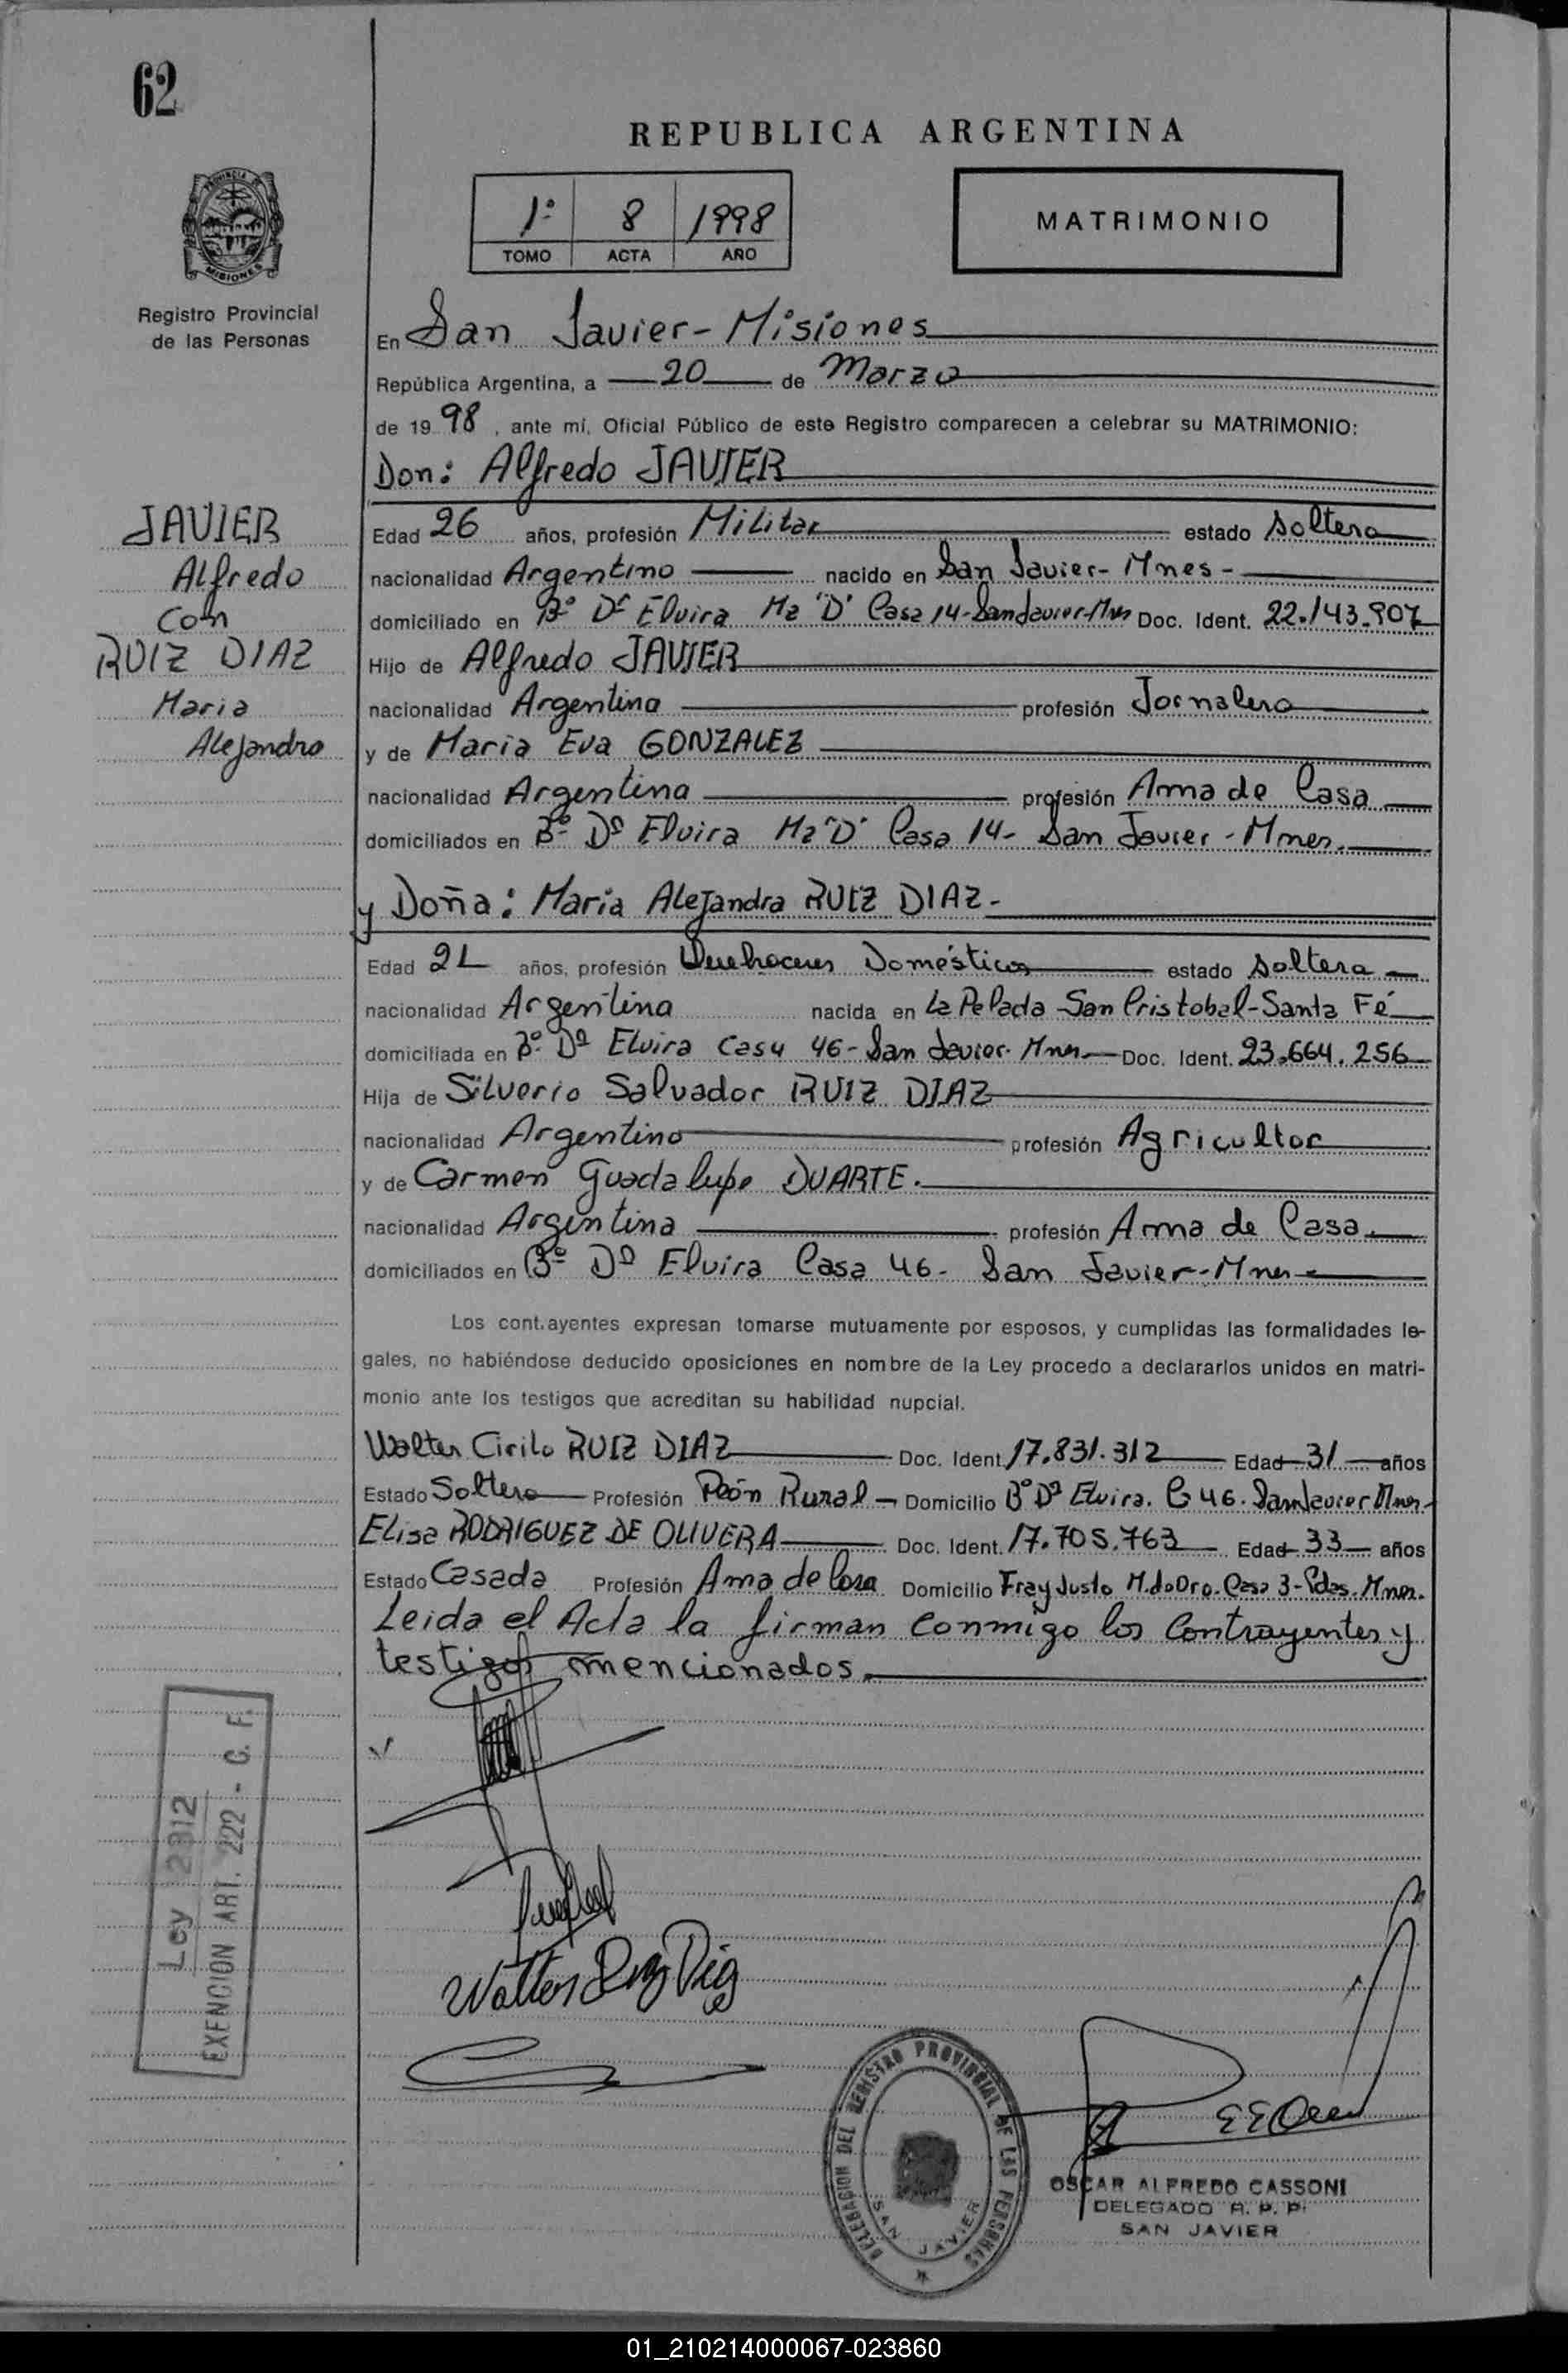 62
REPUBLICA ARGENTINA
PROVINCIA DE
MISIONES
1º 8 1998
TOMO ACTA AÑO
MATRIMONIO
Registro Provincial
de las Personas
En San Javier - Misiones
República Argentina, a 20 de Marzo
de 1998, ante mí, Oficial Público de este Registro comparecen a celebrar su MATRIMONIO:
Don: Alfredo JAVIER
JAVIER
Alfredo
con
RUIZ DIAZ
Maria
Alejandra
Edad 26 años, profesión Militar estado soltero
nacionalidad Argentino nacido en San Javier - Mnes -
domiciliado en Bº Dª Elvira Mz "D" Casa 14 - San Javier - Mnes Doc. Ident. 22.143.907
Hijo de Alfredo JAVIER
nacionalidad Argentina profesión Jornalero
y de Maria Eva GONZALEZ
nacionalidad Argentina profesión Ama de Casa
domiciliados en Bº Dª Elvira Mz "D" Casa 14 - San Javier - Mnes.
y Doña: Maria Alejandra RUIZ DIAZ -
Edad años, profesión Quehaceres Domésticos estado soltera
nacionalidad Argentina nacida en La Pelada San Cristobal - Santa Fé
domiciliada en Bº Dª Elvira Casa 46 - San Javier - Mnes Doc. Ident. 23.664.256
Hija de Silverio Salvador RUIZ DIAZ
nacionalidad Argentino profesión Agricultor
y de Carmen Guadalupe DUARTE.
nacionalidad Argentina profesión Ama de Casa
domiciliados en Bº Dª Elvira Casa 46 - San Javier - Mnes
Los contrayentes expresan tomarse mutuamente por esposos, y cumplidas las formalidades le-
gales, no habiéndose deducido oposiciones en nombre de la Ley procedo a declararlos unidos en matri-
monio ante los testigos que acreditan su habilidad nupcial.
Walter Cirilo RUIZ DIAZ Doc. Ident. 17.831.312 Edad 31 años
Estado Soltero Profesión Peón Rural Domicilio Bº Dª Elvira. C 46. San Javier Mnes
Elisa RODRIGUEZ DE OLIVERA Doc. Ident. 17.705.763 Edad 33 años
Estado Casada Profesión Ama de Casa Domicilio Fray Justo Casa 3 - Pdas. Mnes.
Leida el Acta la firman conmigo los Contrayentes y
testigos mencionados.
Ley 2912
EXENCION ART. 222 - C. F.
Walter Ruiz Diaz
DELEGACION DEL REGISTRO PROVINCIAL DE LAS PERSONAS
SAN JAVIER
OSCAR ALFREDO CASSONI
DELEGADO R. P. P.
SAN JAVIER
01_210214000067-023860